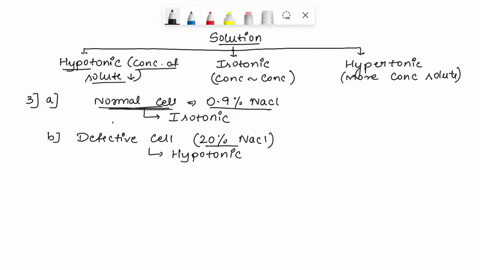 Solution
Hypotonic (conc. of solute ↓)
Isotonic (conc ~ conc)
Hypertonic (more conc solute)
3] a] Normal cell ⇒ 0.9% Nacl
↳ Isotonic
b] Defective cell (20% Nacl)
↳ Hypotonic